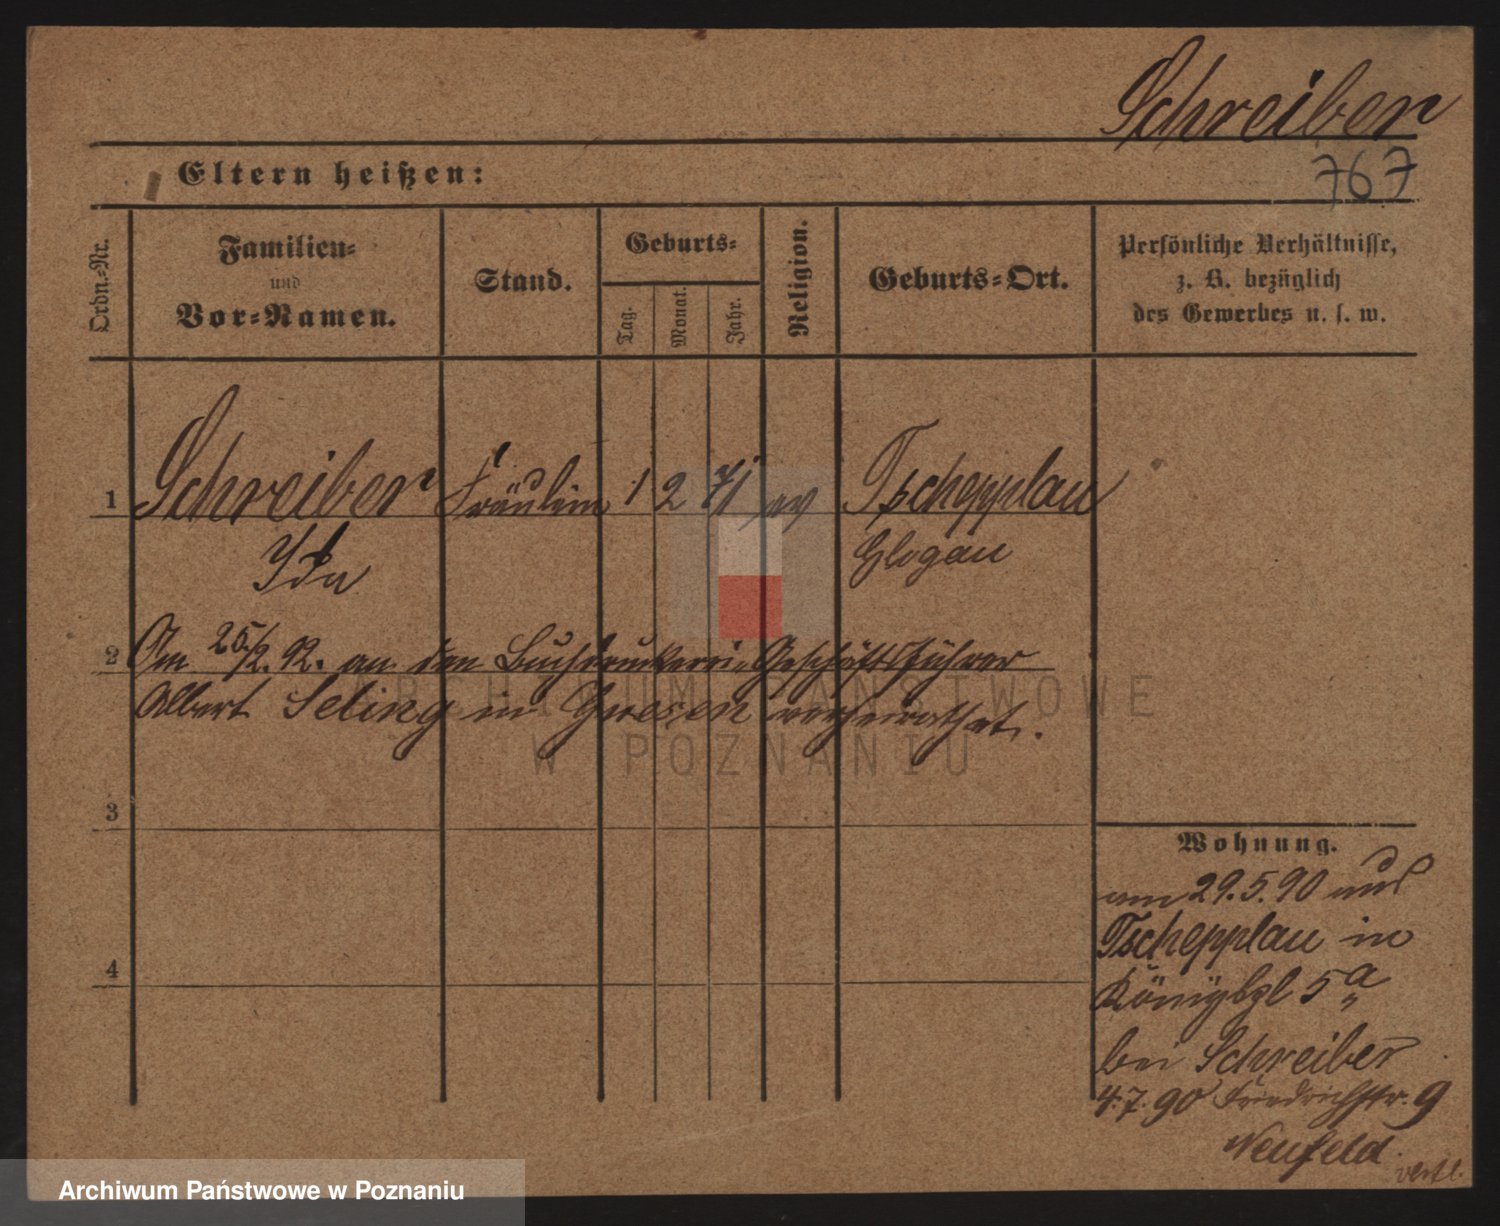 Schreiber
Eltern heißen:
767
Ordn.-Nr.
Familien-
und
Vor-Namen.
Stand.
Geburts-
Tag.
Monat.
Jahr.
Religion.
Geburts-Ort.
Persönliche Verhältnisse,
z. B. bezüglich
des Gewerbes u. s. w.
1 Schreiber Fräulein 1 2 71 ev Tschepplau
Ida Glogau
2 Am 25/2. 92. an den Buchdruckerei-Geschäftsführer
Albert Seling in Gnesen verheirathet.
ARCHIWUM PAŃSTWOWE
W POZNANIU
3
Wohnung.
am 29.5.90 aus
Tschepplau in
4
Königspl 5a
bei Schreiber
4.7.90 Friedrichstr. 9
Neufeld.
Archiwum Państwowe w Poznaniu